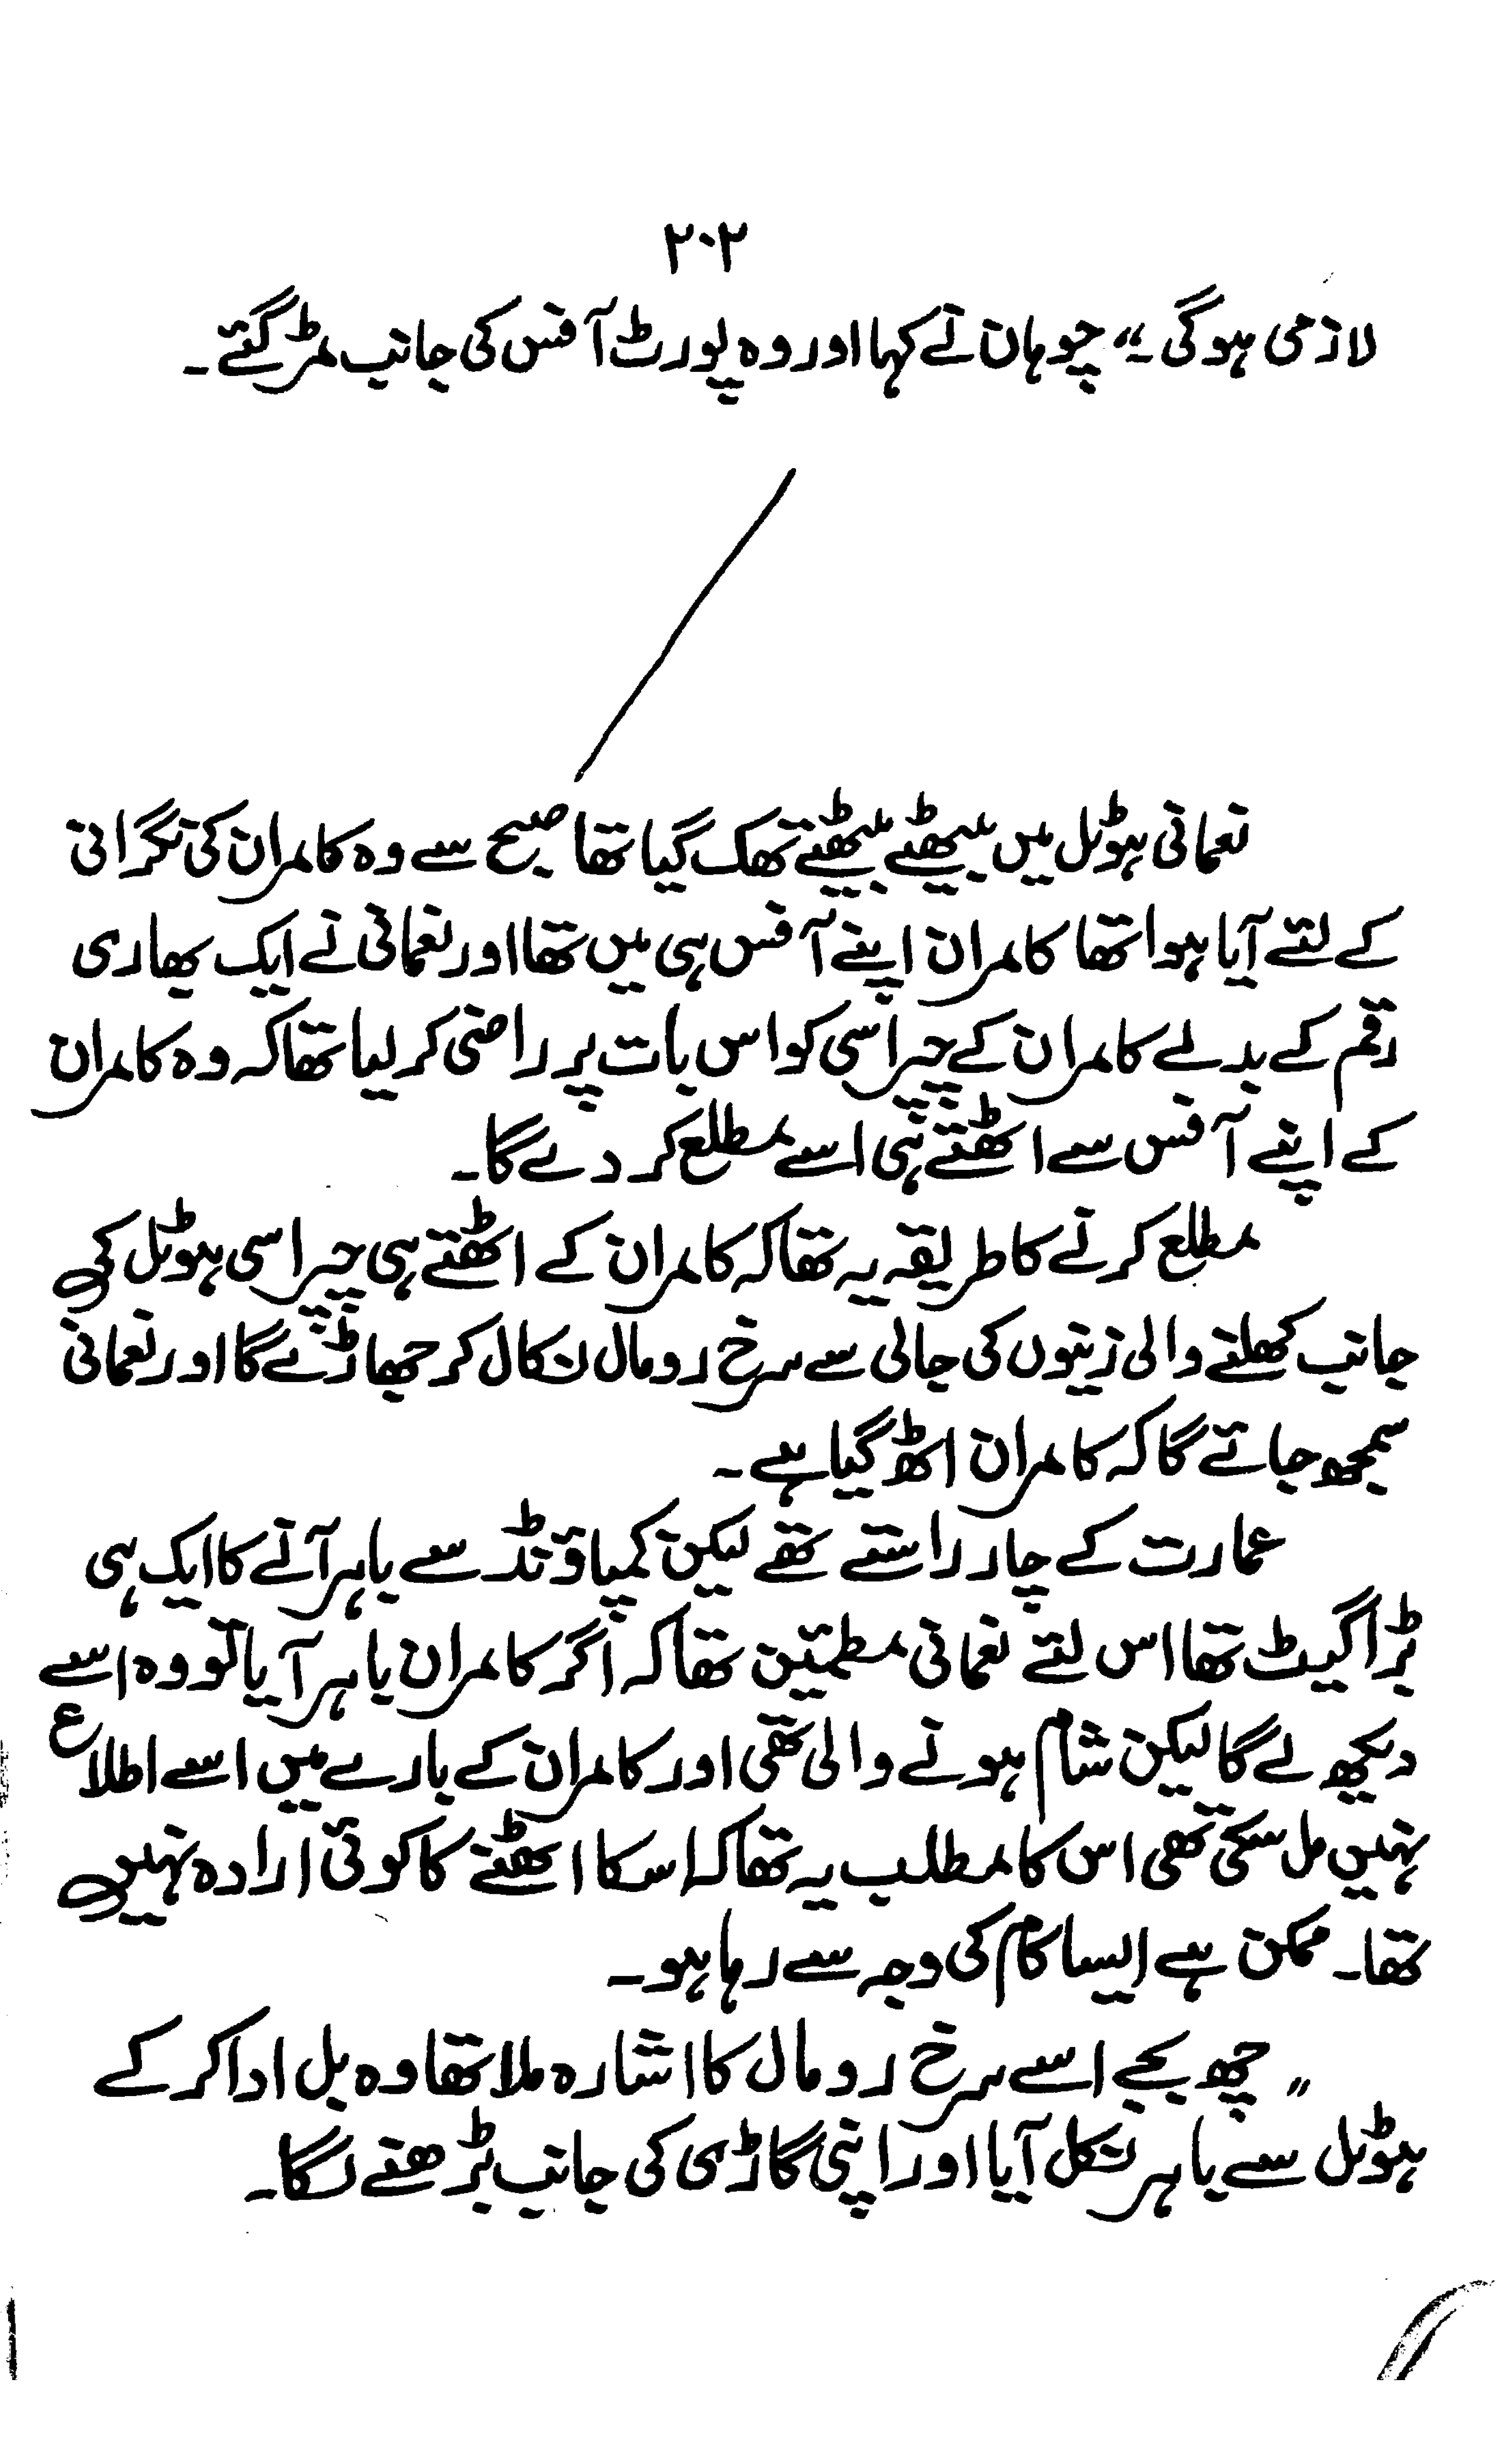 ۲۰۲
لازمی ہوگی۔" چوہان نے کہا اور وہ پورٹ آفس کی جانب مڑ گئے۔
نعمانی ہوٹل میں بیٹھے بیٹھے تھک گیا تھا صبح سے وہ کامران کی نگرانی
کے لئے آیا ہوا تھا کامران اپنے آفس ہی میں تھا اور نعمانی نے ایک بھاری
رقم کے بدلے کامران کے چپراسی کو اس بات پر راضی کر لیا تھا کہ وہ کامران
کے اپنے آفس سے اٹھتے ہی اسے مطلع کر دے گا۔
مطلع کرنے کا طریقہ یہ تھا کہ کامران کے اٹھتے ہی چپراسی ہوٹل کی
جانب کھلنے والی زینوں کی جالی سے سرخ رومال نکال کر جھاڑے گا اور نعمانی
سمجھ جائے گا کہ کامران اٹھ گیا ہے۔
عمارت کے چار راستے تھے لیکن کمپاؤنڈ سے باہر آنے کا ایک ہی
بڑا گیٹ تھا اس لئے نعمانی مطمئین تھا کہ اگر کامران باہر آیا تو وہ اسے
دیکھ لے گا لیکن شام ہونے والی تھی اور کامران کے بارے میں اسے اطلاع
نہیں مل سکی تھی اس کا مطلب یہ تھا کہ اسکا اٹھنے کا کوئی ارادہ نہیں
تھا۔ ممکن ہے ایسا کام کی وجہ سے رہا ہو۔
" چھ بجے اسے سرخ رومال کا اشارہ ملا تھا وہ بل ادا کر کے
ہوٹل سے باہر نکل آیا اور اپنی گاڑی کی جانب بڑھنے لگا۔